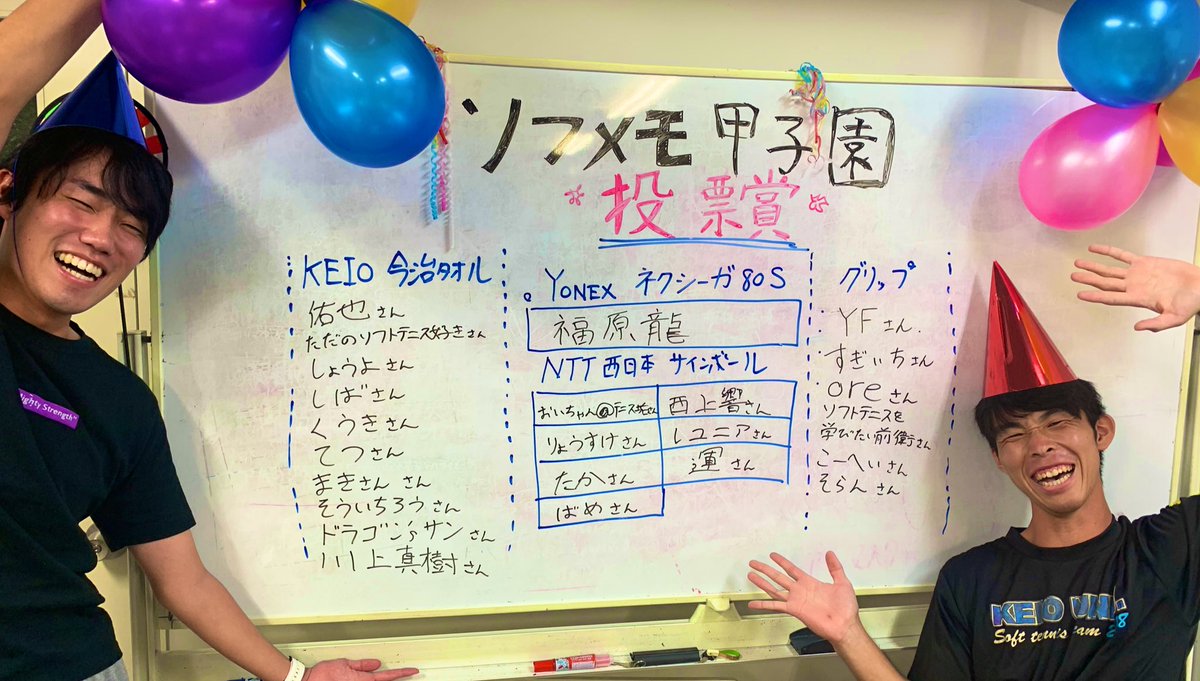 ソフメモ甲子園
投票賞
KEIO 今治タオル
佑也さん
ただのソフトテニス好きさん
しょうよさん
しばさん
くうきさん
てつさん
まきさんさん
そういちろうさん
ドラゴン'sサンさん
川上真樹さん
YONEX ネクシーガ80S
福原龍
NTT西日本 サインボール
おいちゃん
西上響さん
りょうすけさん
レユニアさん
たかさん
運さん
ばめさん
グリップ
YFさん
すぎぃちさん
oreさん
ソフトテニスを
学びたい前衛さん
こーへいさん
そらんさん
ighty Strength
KEIO UNI.
Soft tennis team